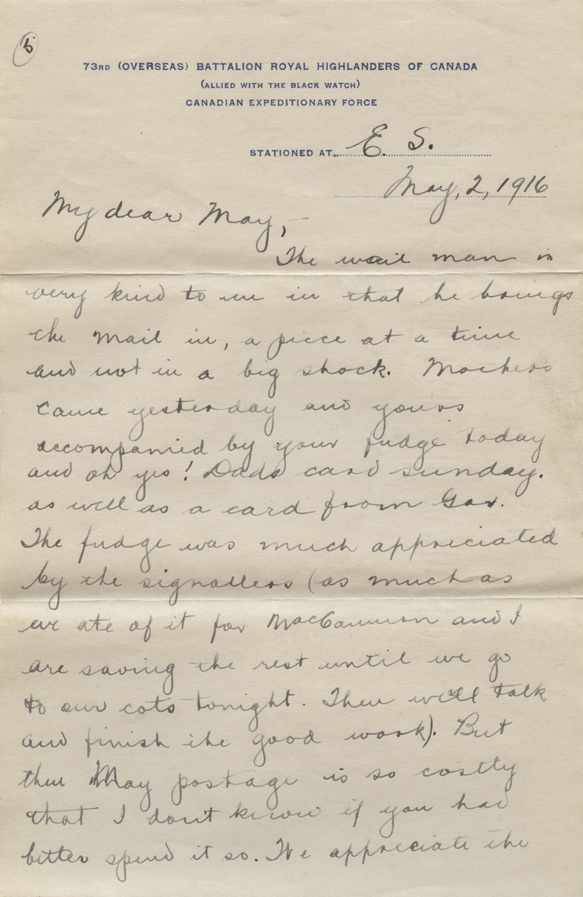 5.
73RD (OVERSEAS) BATTALION ROYAL HIGHLANDERS OF CANADA
(ALLIED WITH THE BLACK WATCH)
CANADIAN EXPEDITIONARY FORCE
STATIONED AT E. S.
May, 2, 1916
My dear May,-
The mail man is
very kind to me in that he brings
the mail in, a piece at a time
and not in a big shock. Mothers
came yesterday and yours
accompanied by your fudge today
and oh yes! Dads card sunday.
as well as a card from Gov.
The fudge was much appreciated
by the signallers (as much as
we ate of it for MacCannon and I
are saving the rest until we go
to our cots tonight. Then we'll talk
and finish the good work). But
then May postage is so costly
that I don't know if you had
better spend it so. We appreciate the